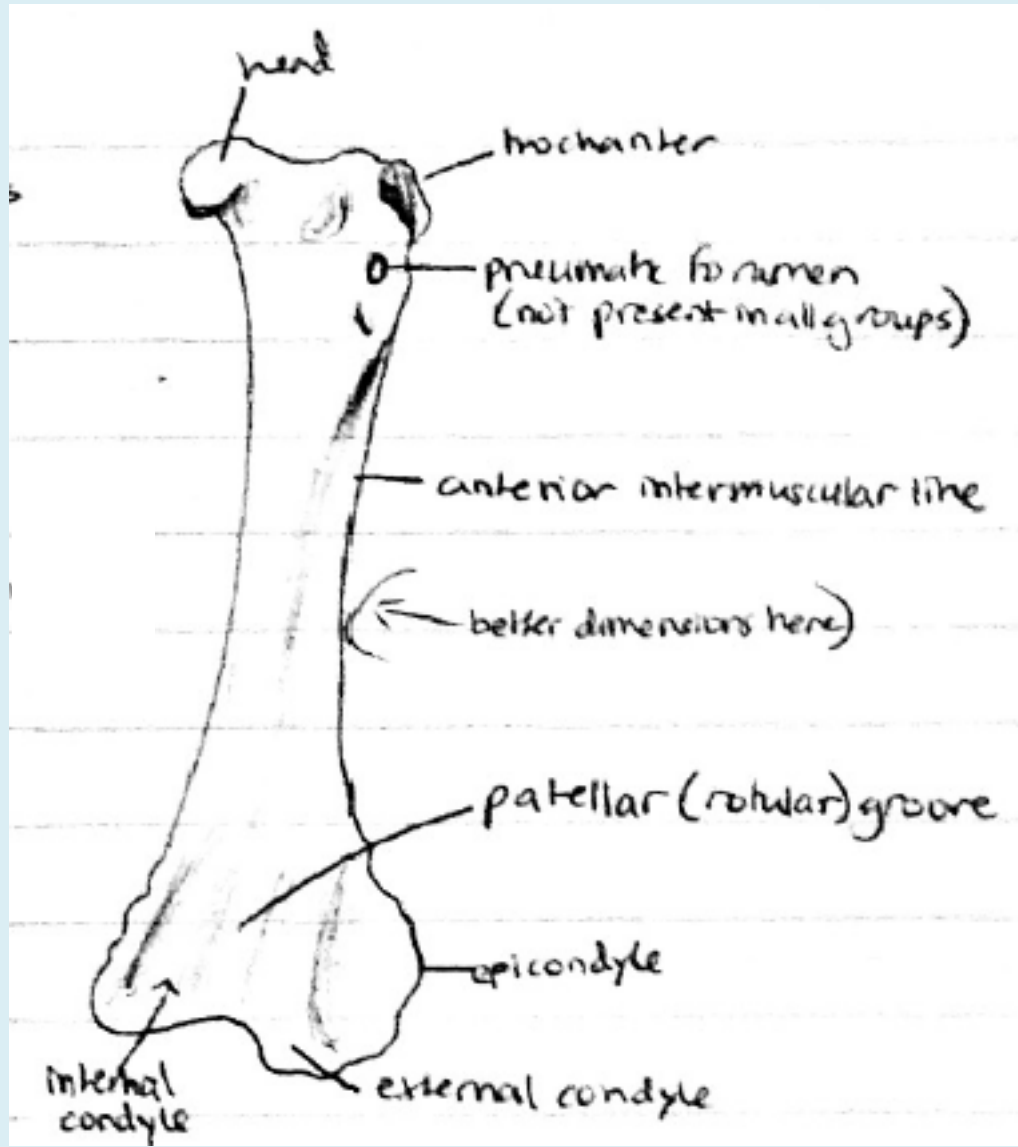 head
trochanter
pneumatic foramen
(not present in all groups)
anterior intermuscular line
better dimensions here)
patellar (rotular) groove
epicondyle
internal
condyle
external condyle